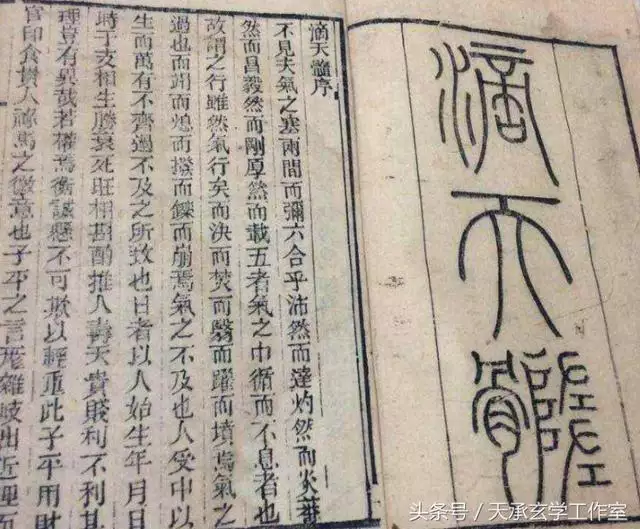 滴天髓
滴天髓序
不見夫氣之塞兩間而彌六合乎沛然而達灼然而炎
然而昌毅然而剛厚然而載五者氣之中循而不息者也
故謂之行雖然氣行矣而決而焚而翳而躍而墳焉氣之
過也而涸而熄而撥而鑠而崩焉氣之不及也人受中以
生而萬有不齊過不及之所致也日者以人始生年月日
時干支相生勝衰死旺相斟酌推人壽夭貴賤利不利其
理豈有異哉若權焉衡誠懸不可欺以輕重此子平用財
官印食人祿馬之徽章也子平之言雜岐出近理而
头条号/天承玄学工作室